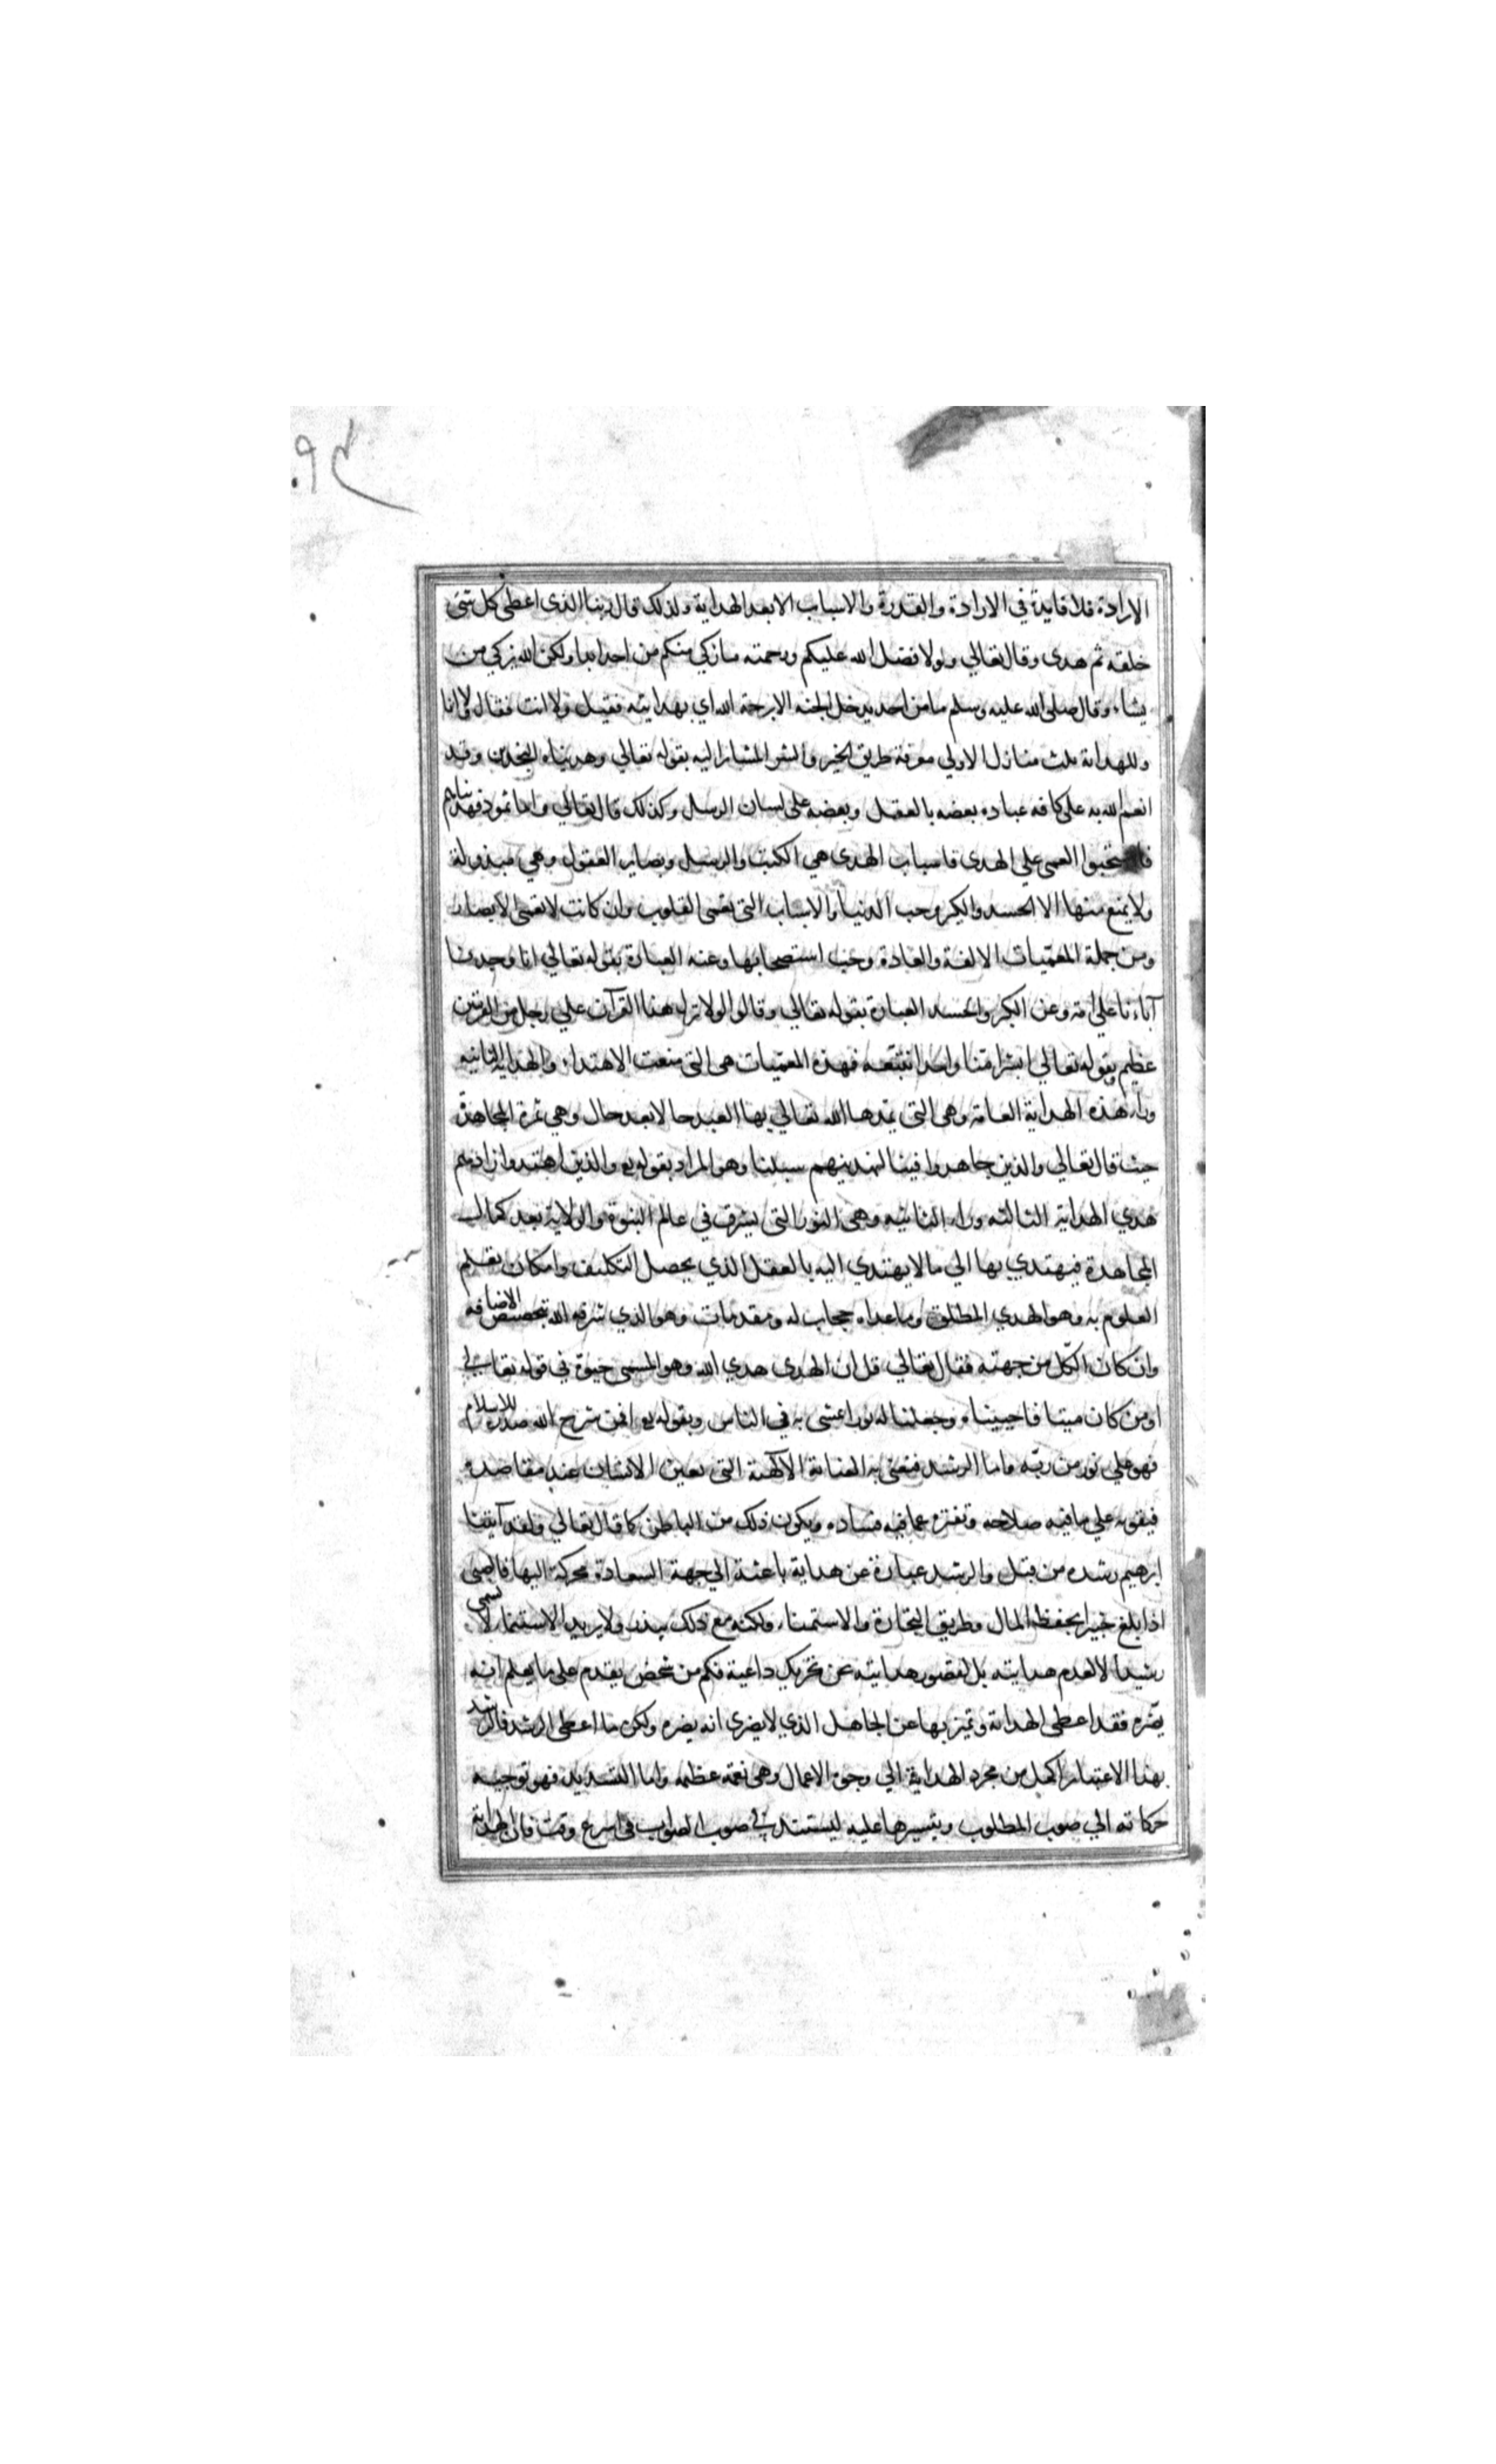 ٩٤
الارادة فلا فايدة في الارادة والقدرة والاسباب الا بعد الهداية ولذلك قال ربنا الذى اعطى كل شئ
خلقه ثم هدى وقال تعالي ولولا فضل الله عليكم ورحمته ما زكي منكم من احد ابدا ولكن الله يزكي من
يشاء وقال صلى الله عليه وسلم ما من احد يدخل الجنه الا برحمة الله اي بهدايته فقيل ولا انت فقال ولا انا
وللهداية ثلث منازل الاولي معرفة طريق الخير والشر المشار اليه بقوله تعالي وهديناه النجدين وقد
انعم الله به على كافه عباده بعضه بالعقل وبعضه على لسان الرسل وكذلك قال تعالي واما ثمود فهديناهم
فاستحبوا العمى علي الهدى فاسباب الهدى هي الكتب والرسل وبصاير العقول وهي مبذولة
ولا يمنع منها الا الحسد والكبر وحب الدنيا والاسباب التى تعمى القلوب وان كانت لا تعمى الابصار
ومن جملة المعميات الالفة والعادة وحب استصحابها وعنه العبارة بقوله تعالي انا وجدنا
آباءنا علي امة وعن الكبر والحسد العبارة بقوله تعالي وقالوا لولا نزل هذا القرآن علي رجل من القريتين
عظيم وبقوله تعالي ابشرا منا واحدا نتبعه فهذه المعميات هى التى منعت الاهتداء والهداية الثانيه
وراء هذه الهداية العامة وهى التى يمد ها الله تعالي بها العبد حالا بعد حال وهي ثمرة المجاهدة
حيث قال تعالي والذين جاهدوا فينا لنهدينهم سبلنا وهو المراد بقوله تع والذين اهتدوا زادهم
هدي الهداية الثالثه وراء الثانيه وهى النور التى يشرق في عالم النبوة والولاية بعد كمال
المجاهدة فيهتدي بها الي ما لا يهتدي اليه بالعقل الذي يحصل التكليف وامكان تعلم
العلوم به وهو الهدي المطلق وما عداه حجاب له ومقدمات وهو الذي شرفه الله بتخصيص الاضافه
وان كان الكل من جهته فقال تعالي قل ان الهدى هدي الله وهو المسمى حيوة في قوله تعالي
اومن كان ميتا فاحييناه وجعلنا له نورا يمشى به في الناس وبقوله تع افمن شرح الله صدره للاسلام
فهو علي نور من ربه واما الرشد فنعنى به العناية الالهية التى تعين الانسان عند مقاصده
فيقويه علي ما فيه صلاحه وتفتره عما فيه فساده ويكون ذلك من الباطن كما قال تعالي ولقد آتينا
ابرهيم رشده من قبل والرشد عبارة عن هداية باعثة الي جهة السعادة محركة اليها فالصبى
اذا بلغ خبيرا بحفظ المال وطريق التجارة والاستنماء ولكنه مع ذلك يبذر ولا يريد الاستنماء لا يسمى
رشيدا لا لعدم هدايته بل لقصور هدايته عن تحريك داعية فكم من شخص يقدم على ما يعلم انه
يضره فقد اعطى الهداية وتميز بها عن الجاهل الذي لا يدرى انه يضره ولكن ما اعطى الرشد فالرشد
بهذا الاعتبار اكمل من مجرد الهداية الي وجوه الاعمال وهى نعمة عظيمه واما التسديد فهو توجيه
حركاته الي صوب المطلوب وتيسيرها عليه ليستند في صوب الصواب فى اسرع وقت فان الهداية